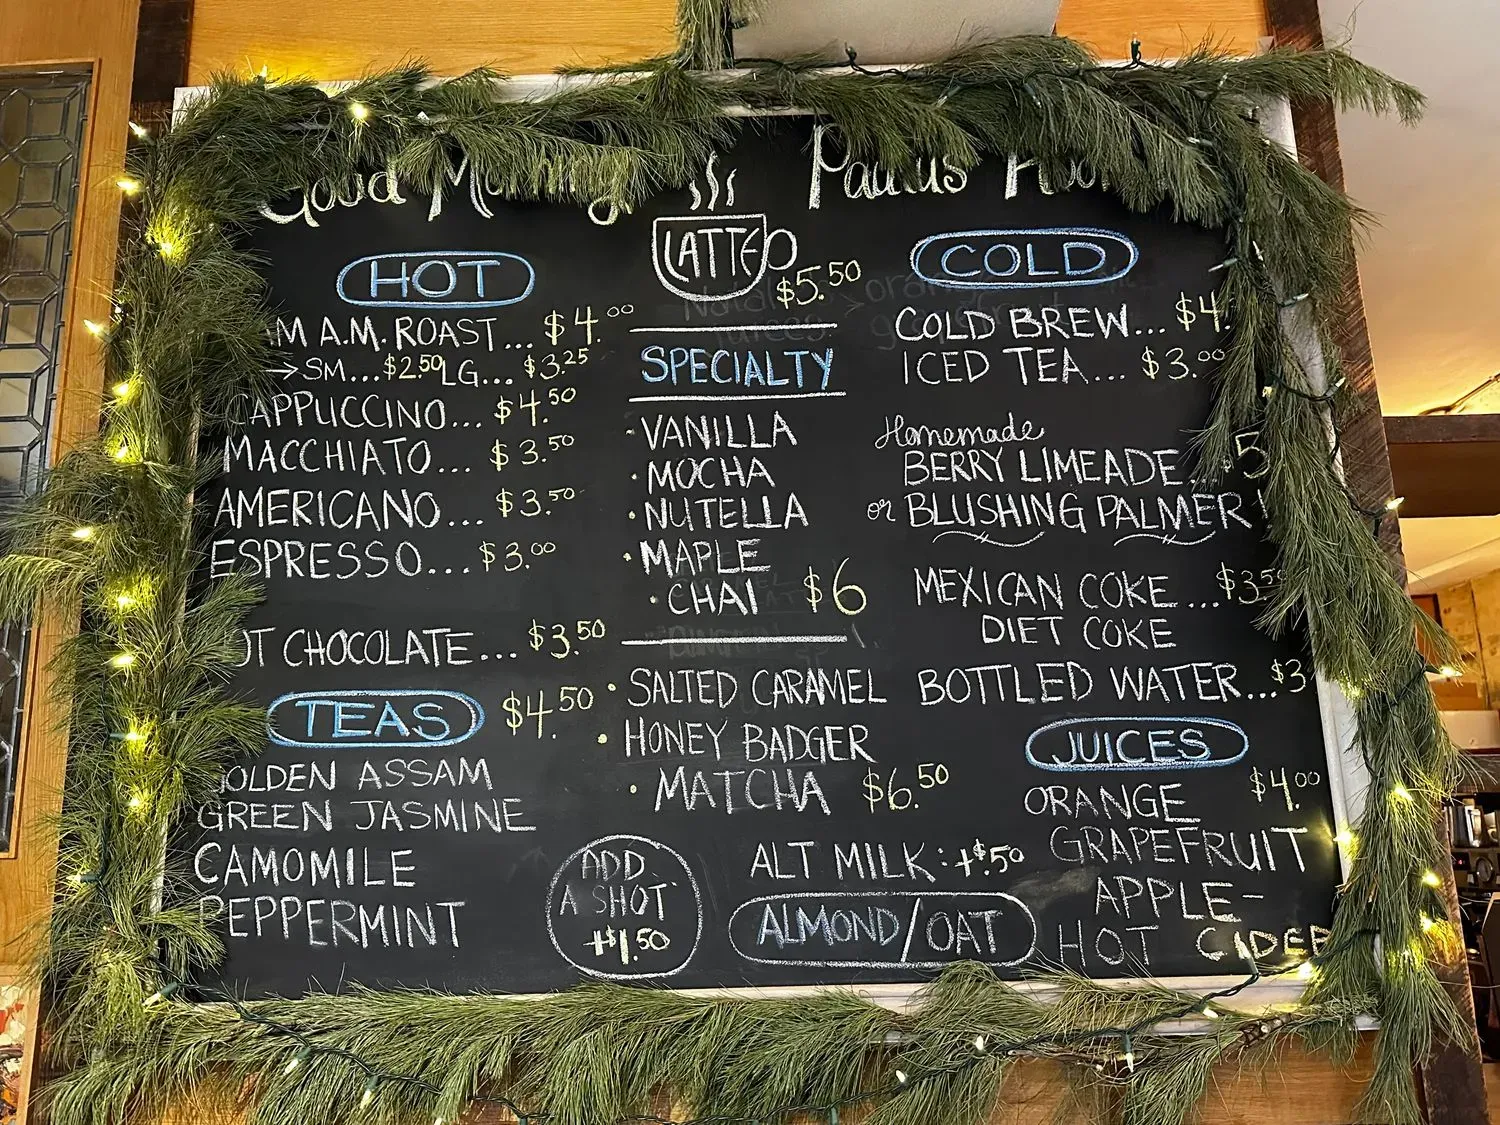 Good Morning
Paulus Hook
HOT
M A.M. ROAST... $4.00
→SM...$2.50 LG... $3.25
CAPPUCCINO... $4.50
MACCHIATO... $3.50
AMERICANO... $3.50
ESPRESSO... $3.00
OT CHOCOLATE... $3.50
TEAS $4.50
OLDEN ASSAM
GREEN JASMINE
CAMOMILE
PEPPERMINT
LATTE
$5.50
SPECIALTY
· VANILLA
· MOCHA
· NUTELLA
· MAPLE
· CHAI $6
· SALTED CARAMEL
· HONEY BADGER
· MATCHA $6.50
ADD
A SHOT
+$1.50
ALT MILK: +$.50
ALMOND/OAT
COLD
COLD BREW... $4.
ICED TEA... $3.00
Homemade
BERRY LIMEADE... $5
or BLUSHING PALMER!
MEXICAN COKE...$3.50
DIET COKE
BOTTLED WATER...$3
JUICES
ORANGE $4.00
GRAPEFRUIT
APPLE-
HOT CIDER